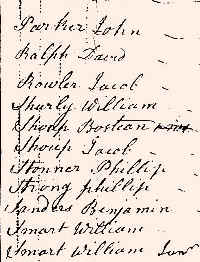 Parker John
Ralph David
Rowler Jacob
Shurly William
Shoup Bostean
Shoup Jacob
Stonner Phillip
Strong phillip
Sanders Benjamin
Smart William
Smart William Junr